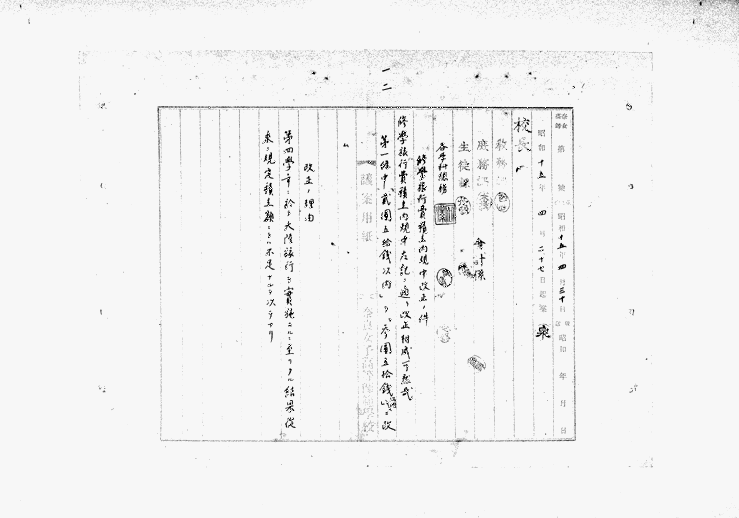 一二
奈女高師 第 號 昭和十五年四月三十日 昭和 年 月 日
昭和十五年四月二十七日起案
校長
教務課
庶務課 會計係
生徒課
各学科現様
修學旅行費積立内規中改正ノ件
修學旅行費積立内規中左記ノ通リ改正相成可然哉
第一條中「貳圓五拾錢以内」ヲ「參圓五拾錢以内」ニ改
議案用紙 奈良女子高等師範學校
改正ノ理由
第四學年ニ於テ大陸旅行ヲ實施スルニ至リタル結果從
來ノ規定積立額ニテハ不足ナルヲ以テナリ